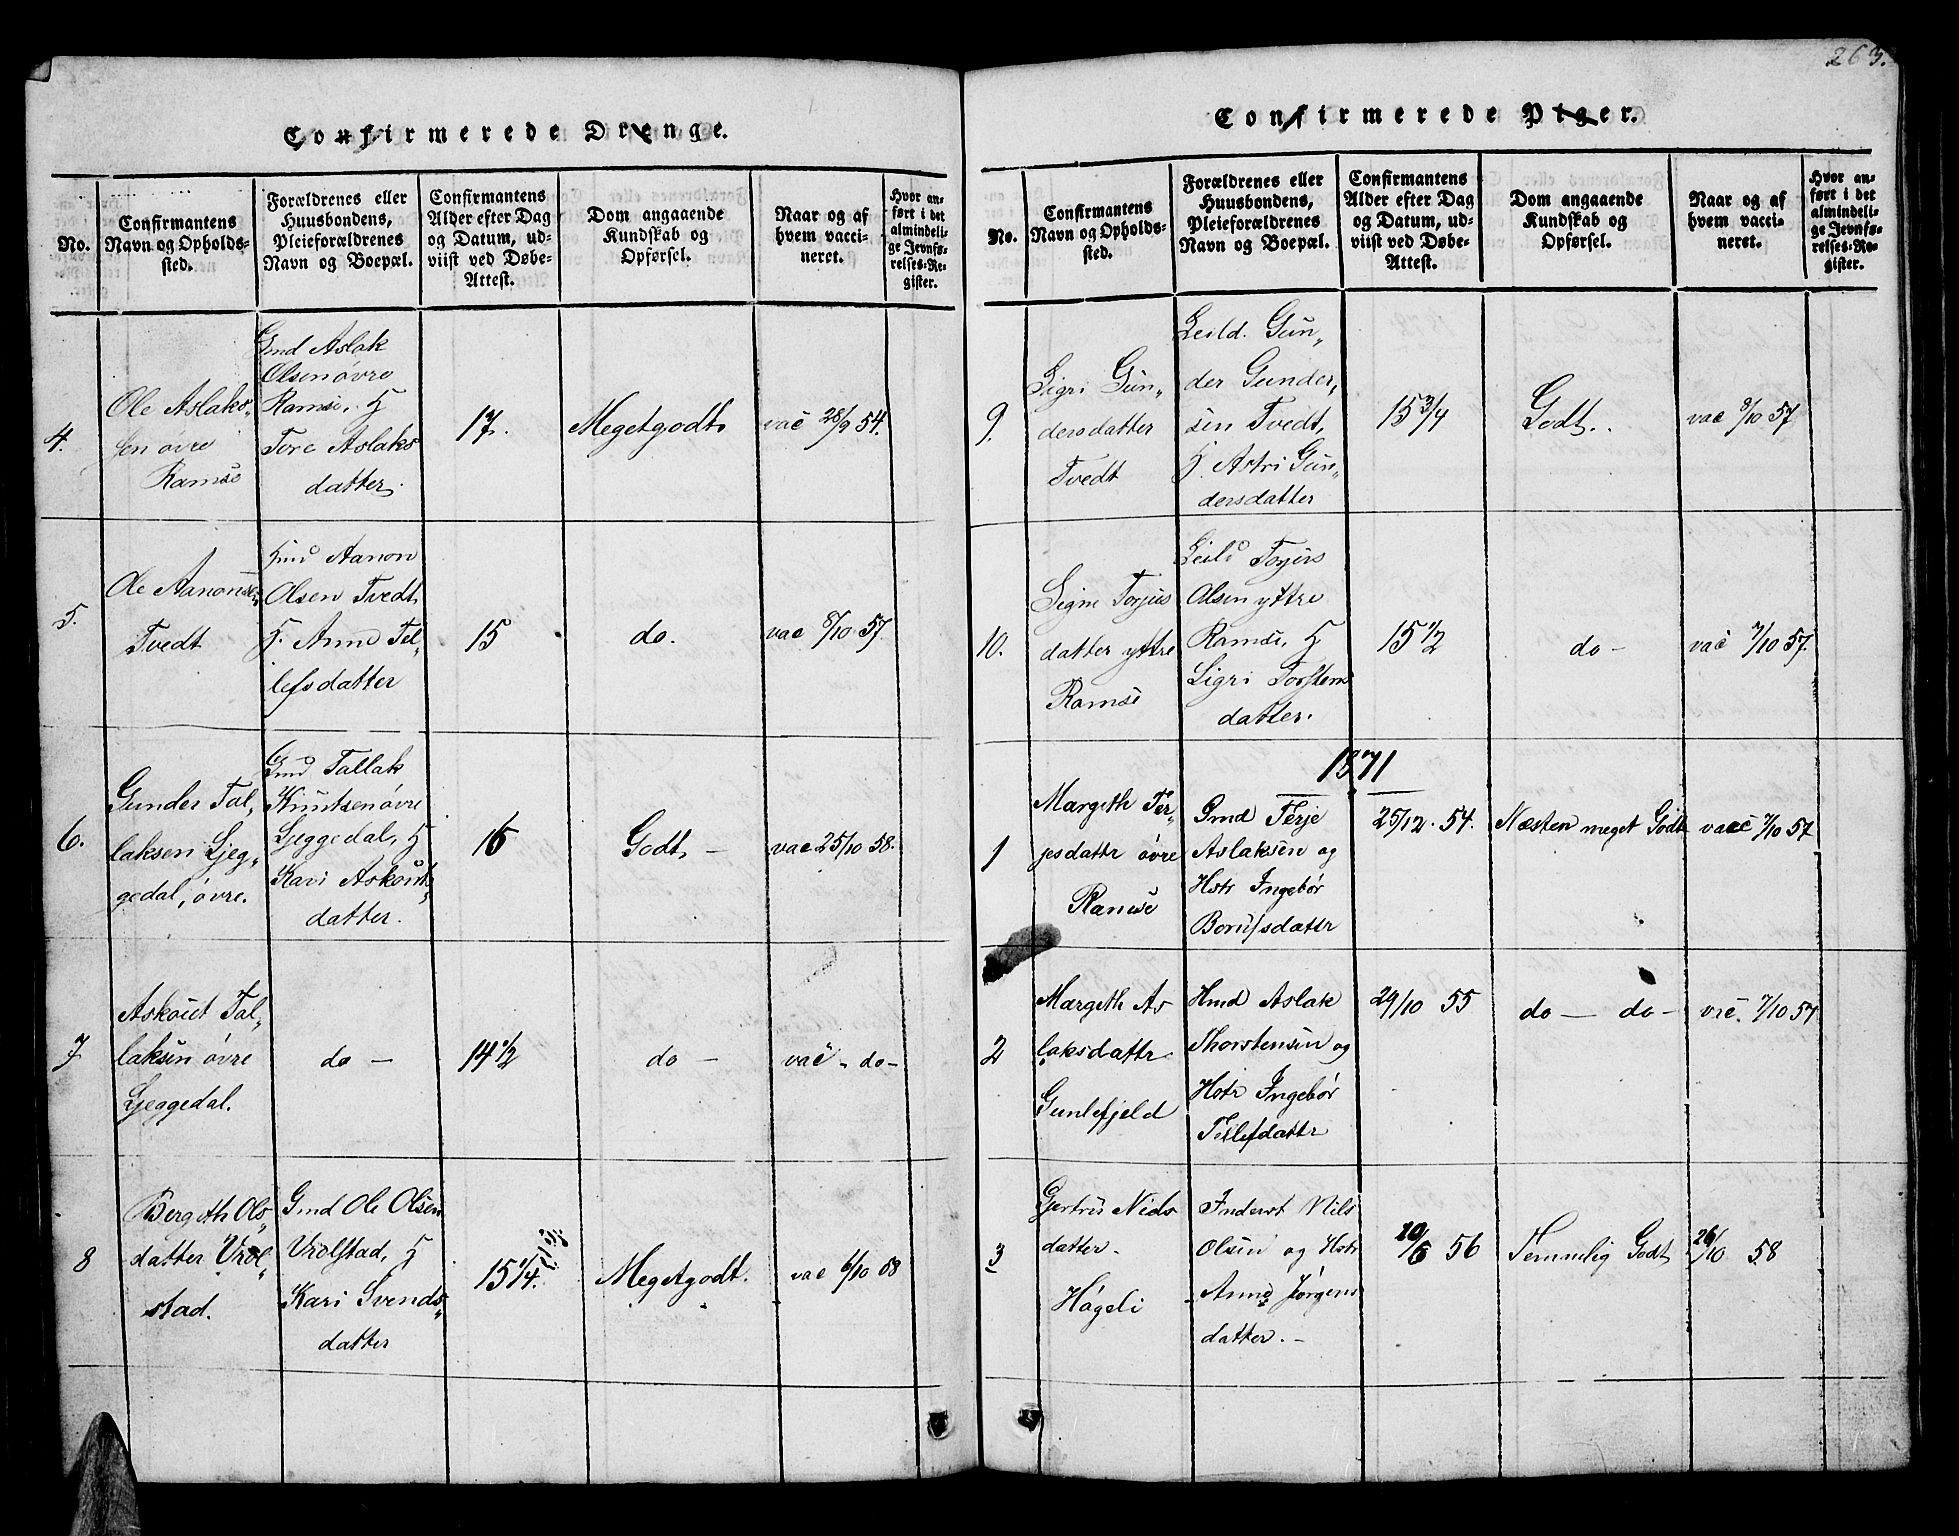 263.
Confirmerede Drenge.
No.
Confirmantens
Navn og Opholds-
sted.
Forældrenes eller
Huusbondens,
Pleieforældrenes
Navn og Boepæl.
Confirmantens
Alder efter Dag
og Datum, ud-
viist ved Døbe-
Attest.
Dom angaaende
Kundskab og
Opførsel.
Naar og af
hvem vacci-
neret.
Hvor an-
ført i det
almindeli-
ge Jevnfø-
relses-Re-
gister.
4.
Ole Aslaks-
sen øvre
Ramse
Gmd Aslak
Olsen øvre
Ramse, H
Tore Aslaks
datter.
17.
Megetgodt.
vac 28/9 54.
5.
Ole Aanonsen
Tvedt
Hmd Aanon
Olsen Tvedt,
H. Anne Tel-
lefsdatter
15
do.
vac 8/10 57.
6.
Gunder Tal-
laksen Ljeg-
gedal, øvre.
Gmd Tallak
Knutsen øvre
Ljeggedal, H
Kari Askouts-
datter.
16
Godt, -
vac 25/10 58.
7
Askout Tal-
laksen øvre
Ljeggedal.
do -
14 1/2
do -
vac - do-
8
Bergith Ols-
datter Vrol-
stad.
Gmd Ole Olsen
Vrolstad, H
Kari Svends-
datter
15 1/4.
Megetgodt.
vac 6/10 58
Confirmerede Piger.
No.
Confirmantens
Navn og Opholds-
sted.
Forældrenes eller
Huusbondens,
Pleieforældrenes
Navn og Boepæl.
Confirmantens
Alder efter Dag
og Datum, ud-
viist ved Døbe-
Attest.
Dom angaaende
Kundskab og
Opførsel.
Naar og af
hvem vacci-
neret.
Hvor an-
ført i det
almindeli-
ge Jevnfø-
relses-Re-
gister.
9.
Sigri Gun-
dersdatter
Tvedt
Leild. Gun-
der Gunder-
sen Tvedt,
H. Astri Gun-
dersdatter
15 3/4
Godt..
vac 8/10 57
10.
Signe Torjus
datter yttre
Ramse
Leild Torjus
Olsen yttre
Ramse, H
Sigri Torstens
datter.
15 1/2
do -
vac 7/10 57.
1871
1
Margith Ter-
jesdattr øvre
Ramse
Gmd Terje
Aslaksen og
Hstr Ingebør
Borufsdattr
25/12. 54.
Næsten meget Godt
vacc 7/10 57
2
Margith As
laksdattr
Gunlefjeld
Hmd Aslak
Thorstensen og
Hstr Ingebør
Tellefdattr
29/10 55
do - do -
vac. 7/10 57
3
Gjertru Nils
datter-
Høgeli
Inderst Nils
Olsen og Hstr
Anne Jørgens
datter. -
10/6 56
Temmelig Godt
26/10 58